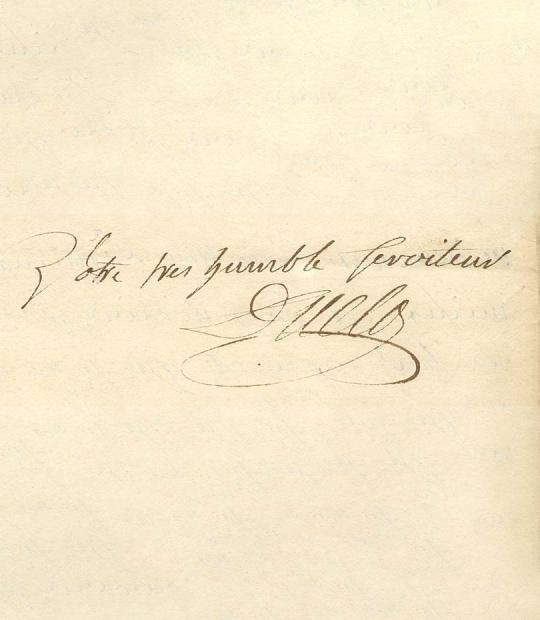 Votre tres humble serviteur
Duclos